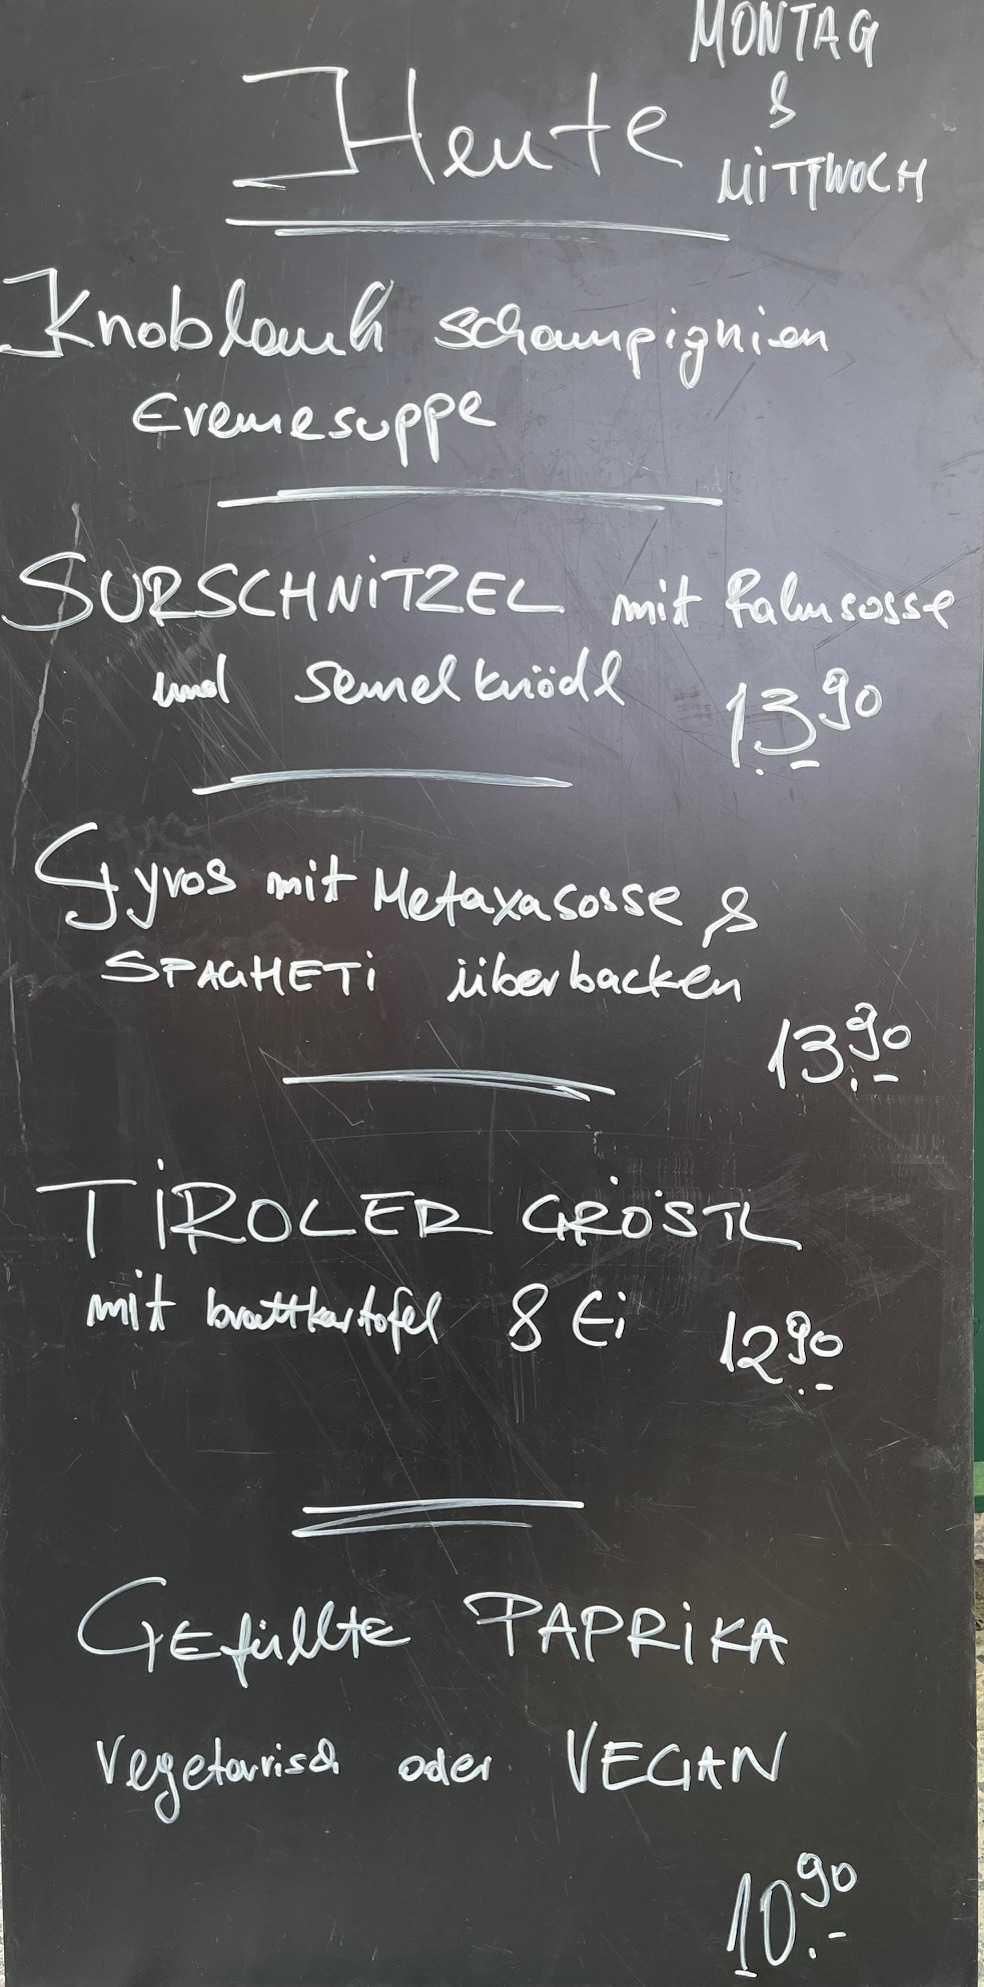 MONTAG
&
Heute
MITTWOCH
Knoblauch Schampignien
Cremesuppe
SURSCHNITZEL mit Rahmsosse
und Semelknödl
13.90
Gyros mit Metaxasosse &
SPAGHETi überbacken
13.90
TiROLER GRÖSTL
mit brattkartofel & Ei 12.90
GEfüllte PAPRiKA
Vegetarisch oder VEGAN
10.90